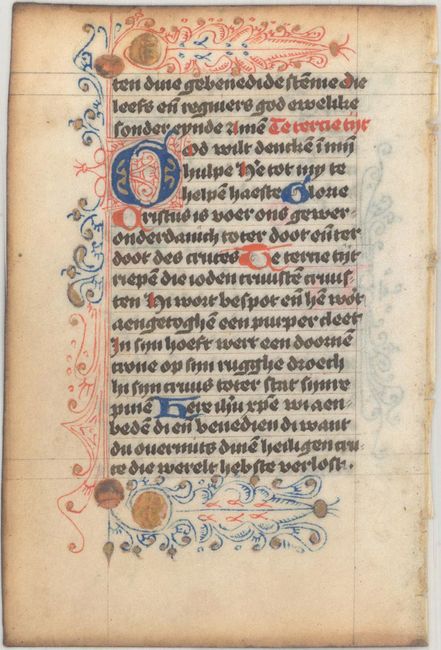 ten dine gebenedide stēme die
leefs eñ regniers god ewelike
sonder eynde Amē Te tercie tijt
God wilt denckē in mij
hulpe He tot my te
helpē haeste Glorie
Cristus is voer ons gewor-
onderdanich toter doot eñ ter
doot des cruces Te tercie tijt
riepē die ioden cruusten cruus-
ten Hi wort bespot eñ hē wort
aengetoghē een purper cleet
In sijn hoeft wert een doornē
crone op sijn rugghe droech
hi sijn cruus toter stat sijnre
pinē Here ihū xpē wi aen-
bedē di en benedien di want
du ouermits dinē heiligen cru-
ce die werelt hebste verlost.